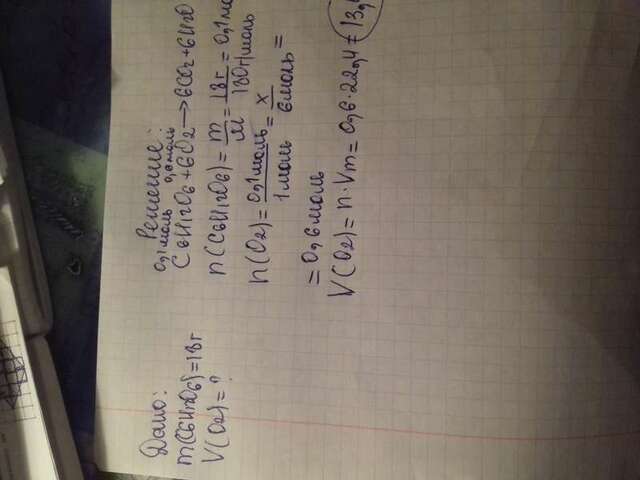 Дано:
m(C6H12O6)=18г
V(O2)=?
Решение:
0,1моль 0,6моль
C6H12O6+6O2→6CO2+6H2O
n(C6H12O6)=m/M=18г/180г/моль=0,1мо
n(O2)=0,1моль/1моль=x/6моль=
=0,6моль
V(O2)=n·Vm=0,6·22,4=13,4